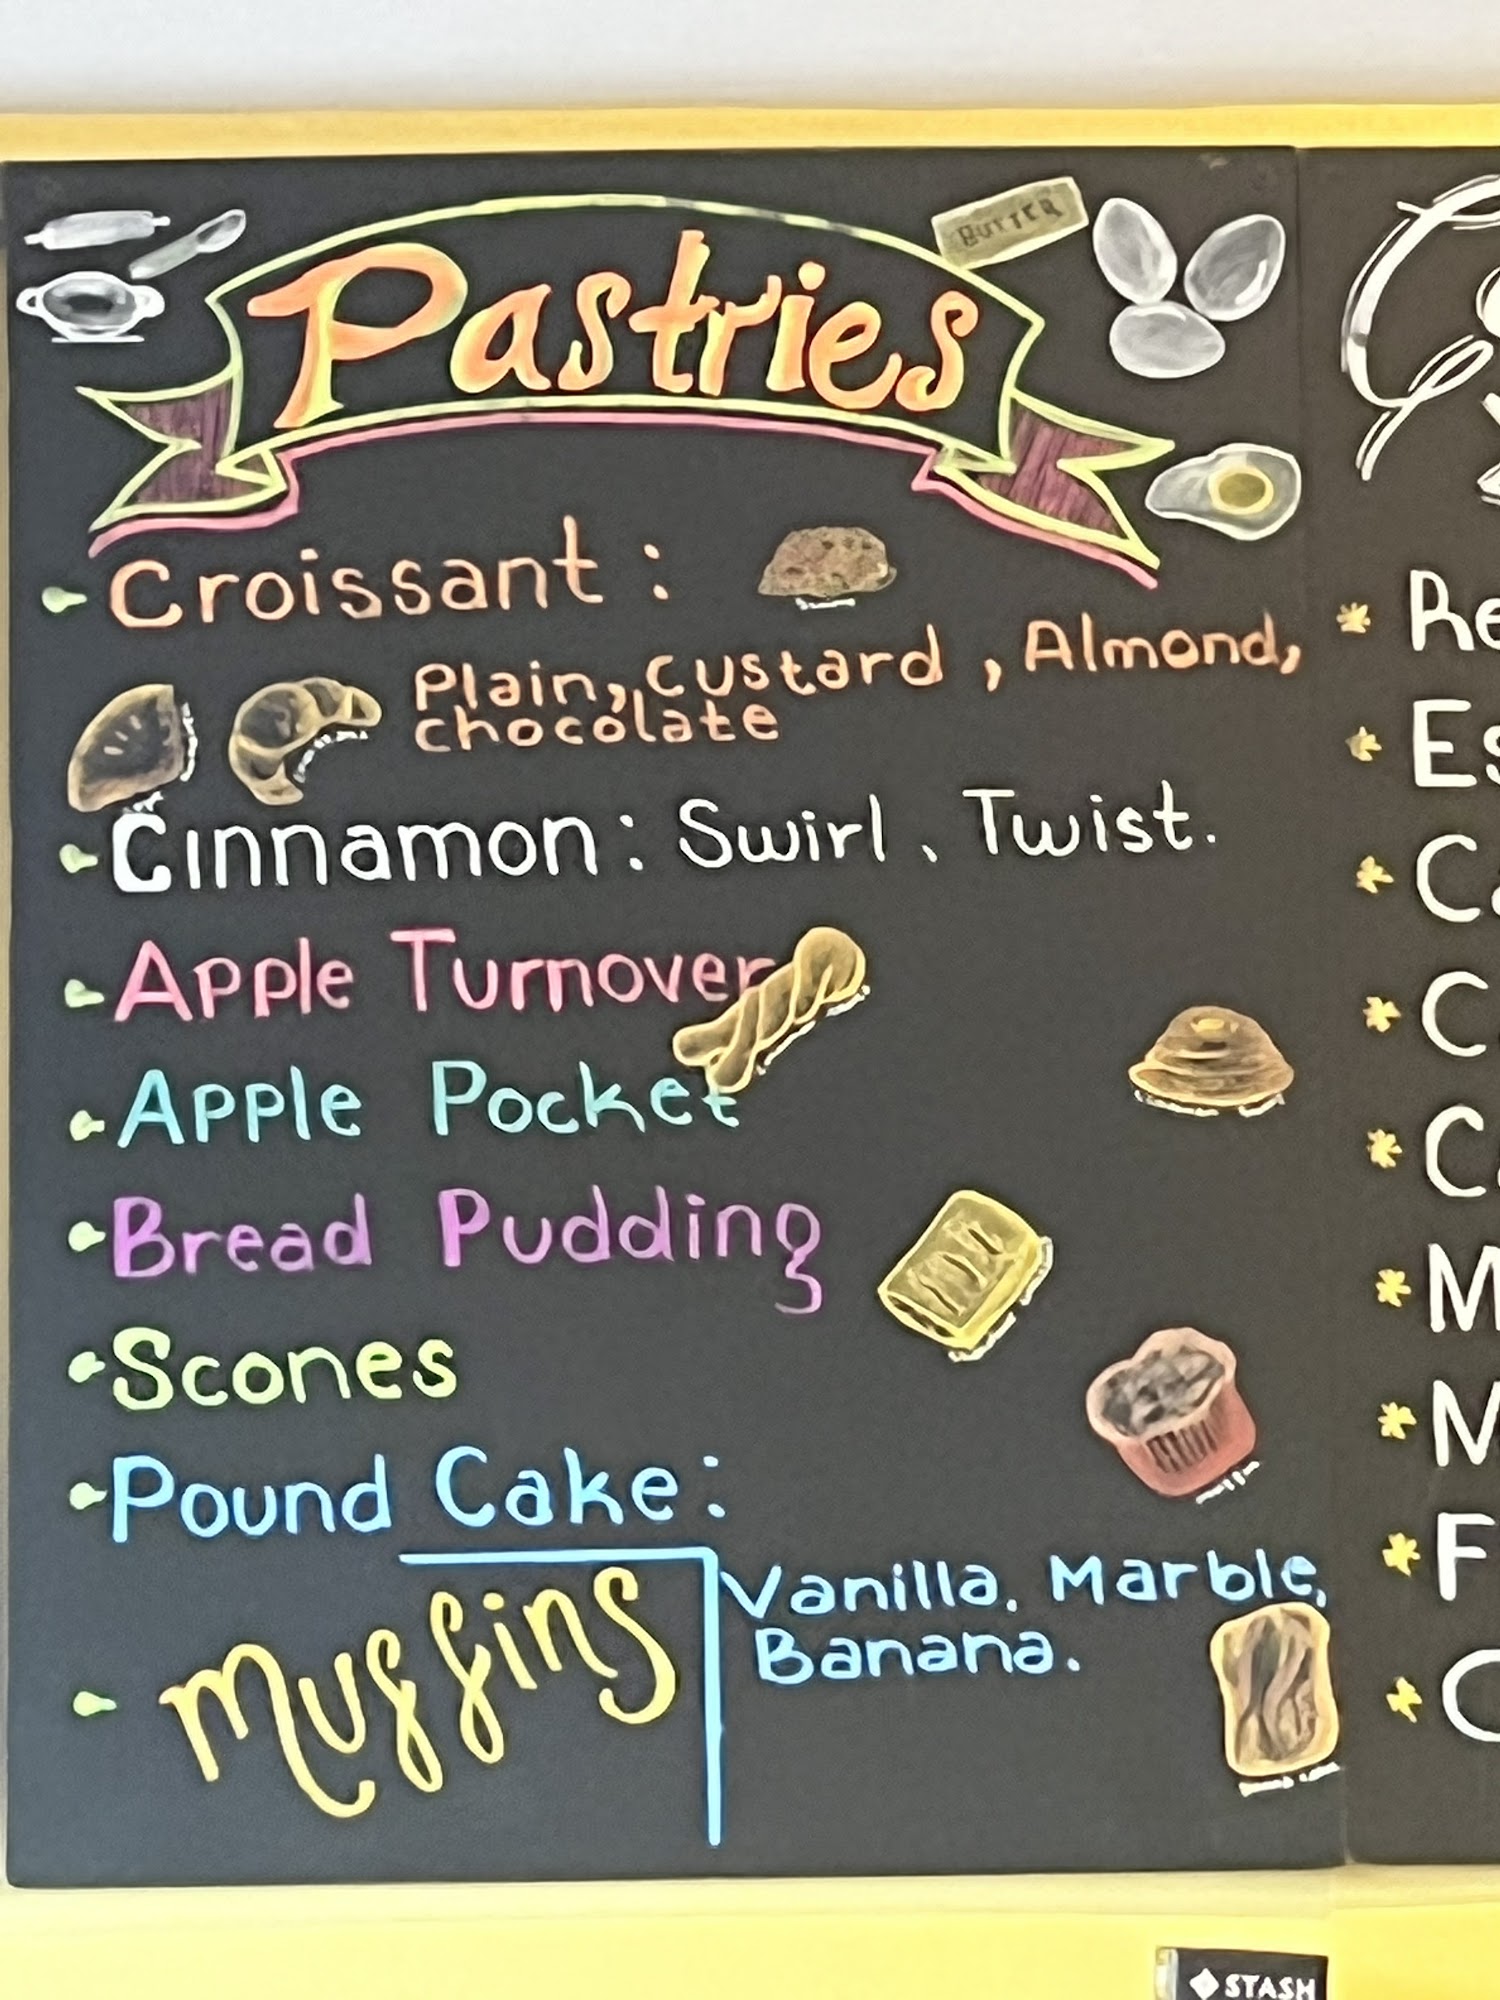 BUTTER
Pastries
Croissant :
Plain, Custard, Almond,
chocolate
Cinnamon: Swirl, Twist.
Apple Turnover
Apple Pocket
Bread Pudding
Scones
Pound Cake:
Vanilla. Marble,
Banana.
Muffins
STASH